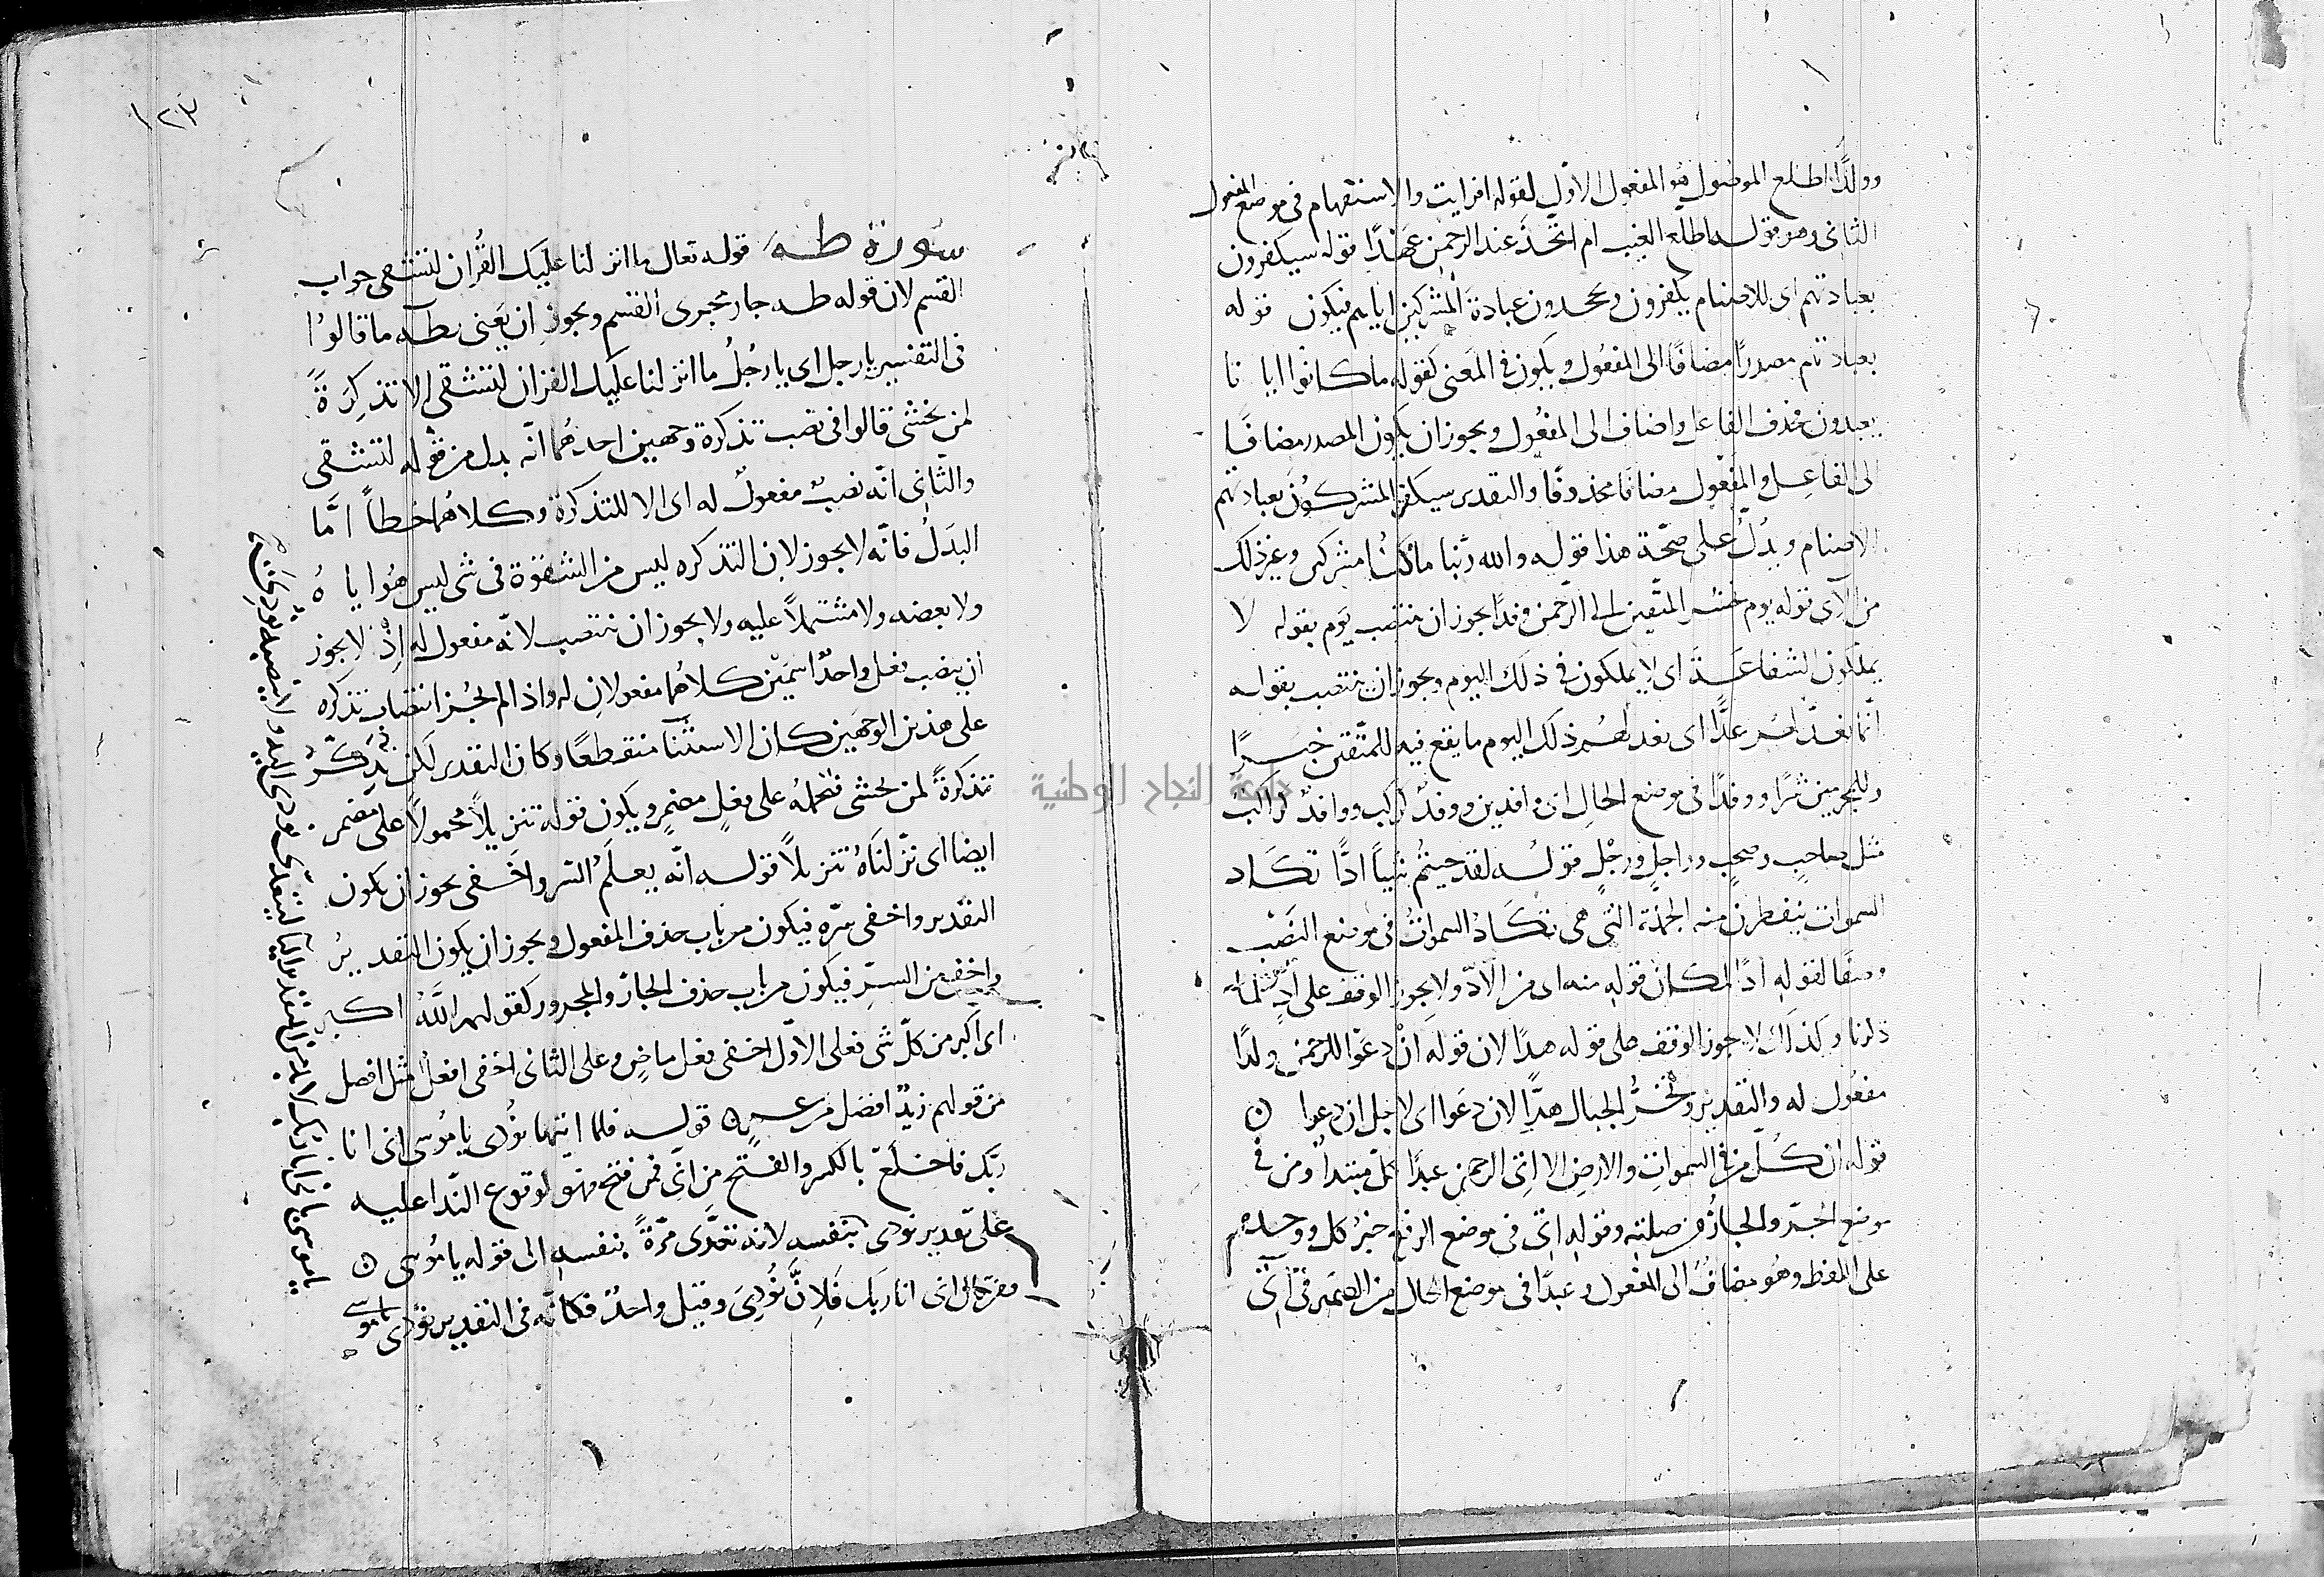 وولدًا اطلع الموصول هو المفعول الاوّل لقوله افرايت والاستفهام في موضع المفعول
الثاني وهو قوله اطلع الغيب ام اتخذ عند الرحمن عهدًا قوله سيكفرون
بعبادتهم اى للاصنام يكفرون ويجحدون عبادة المشركين اياهم فيكون قوله
بعبادتهم مصدرًا مضافًا الى المفعول ويكون في المعنى كقوله ما كانوا ايانا
يعبدون فحذف الفاعل واضاف الى المفعول ويجوز ان يكون المصدر مضافًا
الى الفاعل والمفعول مضافًا محذوفًا والتقدير سيكفر المشركون بعبادتهم
الاصنام ويدُلّ على صحّة هذا قوله والله ربّنا ما كنا مشركين وغير ذلك
من الآى قوله يوم نحشر المتّقين الى الرحمن وفدًا يجوز ان ينتصب يوم بقوله لا
يملكون الشفاعة اى لا يملكون في ذلك اليوم ويجوز ان ينتصب بقوله
انّما نعدّ لهم عدًّا اى نعد لهم ذلك اليوم ما يقع فيه للمتّقين خيرًا
وللمجرمين شرًا ووفدًا في موضع الحال اى وافدين ووفدٌ كركب ووافد كراكب
مثل صاحبٍ وصحبٍ وراجلٍ ورجْلٍ قوله لقد جيتم شيًا ادًّا تكاد
السموات يتفطرن منه الجملة التي هي تكاد السمواتُ في موضع النصب
وصفًا لقوله ادًا لمكان قوله منه اى من الادّ ولا يجوز الوقف على ادٍّ لما
ذكرنا وكذلك لا يجوز الوقف على قوله هدًا لان قوله انْ دعوا للرحمن ولدًا
مفعول له والتقدير وتخرُّ الجبال هدًّا لان دعوا اى لاجل ان دعوا
قوله ان كُلّ من في السمواتِ والارضِ الا اتي الرحمن عبدًا كلّ مبتدأ ومن في
موضع الجرّ والجارُّ من صلته وقوله اتي في موضع الرفع خبرُ كل ووحدهم
على اللفظ وهُو مضافٌ الى المفعول وعبدًا في موضع الحال من الضمير في اتي
١٢٣
سورة طه قوله تعالى ما انزلنا عليك القُران لتشقى جواب
القسم لان قوله طه جار مجرى القسم ويجوز ان يَعنى بطه ما قالوُا
في التفسير يا رجل اى يا رجُلُ ما انزلنا عليك القران لتشقى الا تذكِرَةً
لمن يخشى قالوا في نصب تذكرة وجهين احدهُما انّه بدل من قوله لتشقى
والثاني انّه نصبٌ مفعولٌ له اى الا للتذكرة وكلاهُما خطاً امَّا
البدَلُ فانّه لا يجوز لان التذكره ليس من الشقوة في شى ليس هُو اياهُ
ولا بعضه ولا مشتملاً عليه ولا يجوز ان ينتصب لانّه مفعول له اِذْ لا يجوز
ان ينصب فعل واحدٌ اسمَيْن كلاهُما مفعولانِ له واذا لم يجُز انتصاب تذكره
على هذين الوجهَين كان الاستثنا منقطعًا وكان التقدير لكن تذكّرُ
تذكرةً لمن يخشى فتحملُه على فعلٍ مضمرٍ ويكون قوله تنزيلاً محمولاً على مضمر
ايضا اى نزّلنَاهُ تنزيلاً قوله انّه يعلَمُ السّر واخفى يجوز ان يكون
التقدير واخفى سرّه فيكون من باب حذف المفعول ويجوز ان يكون التقديرُ
واخفى من السرّ فيكون من باب حذف الجارّ والمجرور كقولهم اللَّهُ اكبر
اى اكبر من كلّ شى فعلى الاوّل اخفى فعل ماضٍ وعلى الثاني اخفى افعلُ مثل افضل
من قولهم زيدٌ افضل من عمرٍو قوله فلما اتيها نُودى يا مُوسى انى انا
ربّك فاخلَعْ بالكسر والفتح من انّى فمن فتح فهو لوقوع الندا عليه
على تقدير نودى بنفسه لانه تعدَّى مرّةً بنفسه الى قوله يا مُوسى
ومن قال انى انا ربك فَلاِنَّ نُودِىَ وقيل واحدٌ فكانّه في التقدير نودى يا موسى